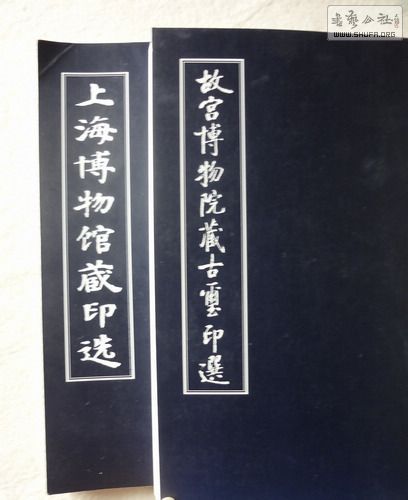 故宫博物院藏古璽印選
上海博物馆藏印选
书艺公社
WWW.SHUFA.ORG